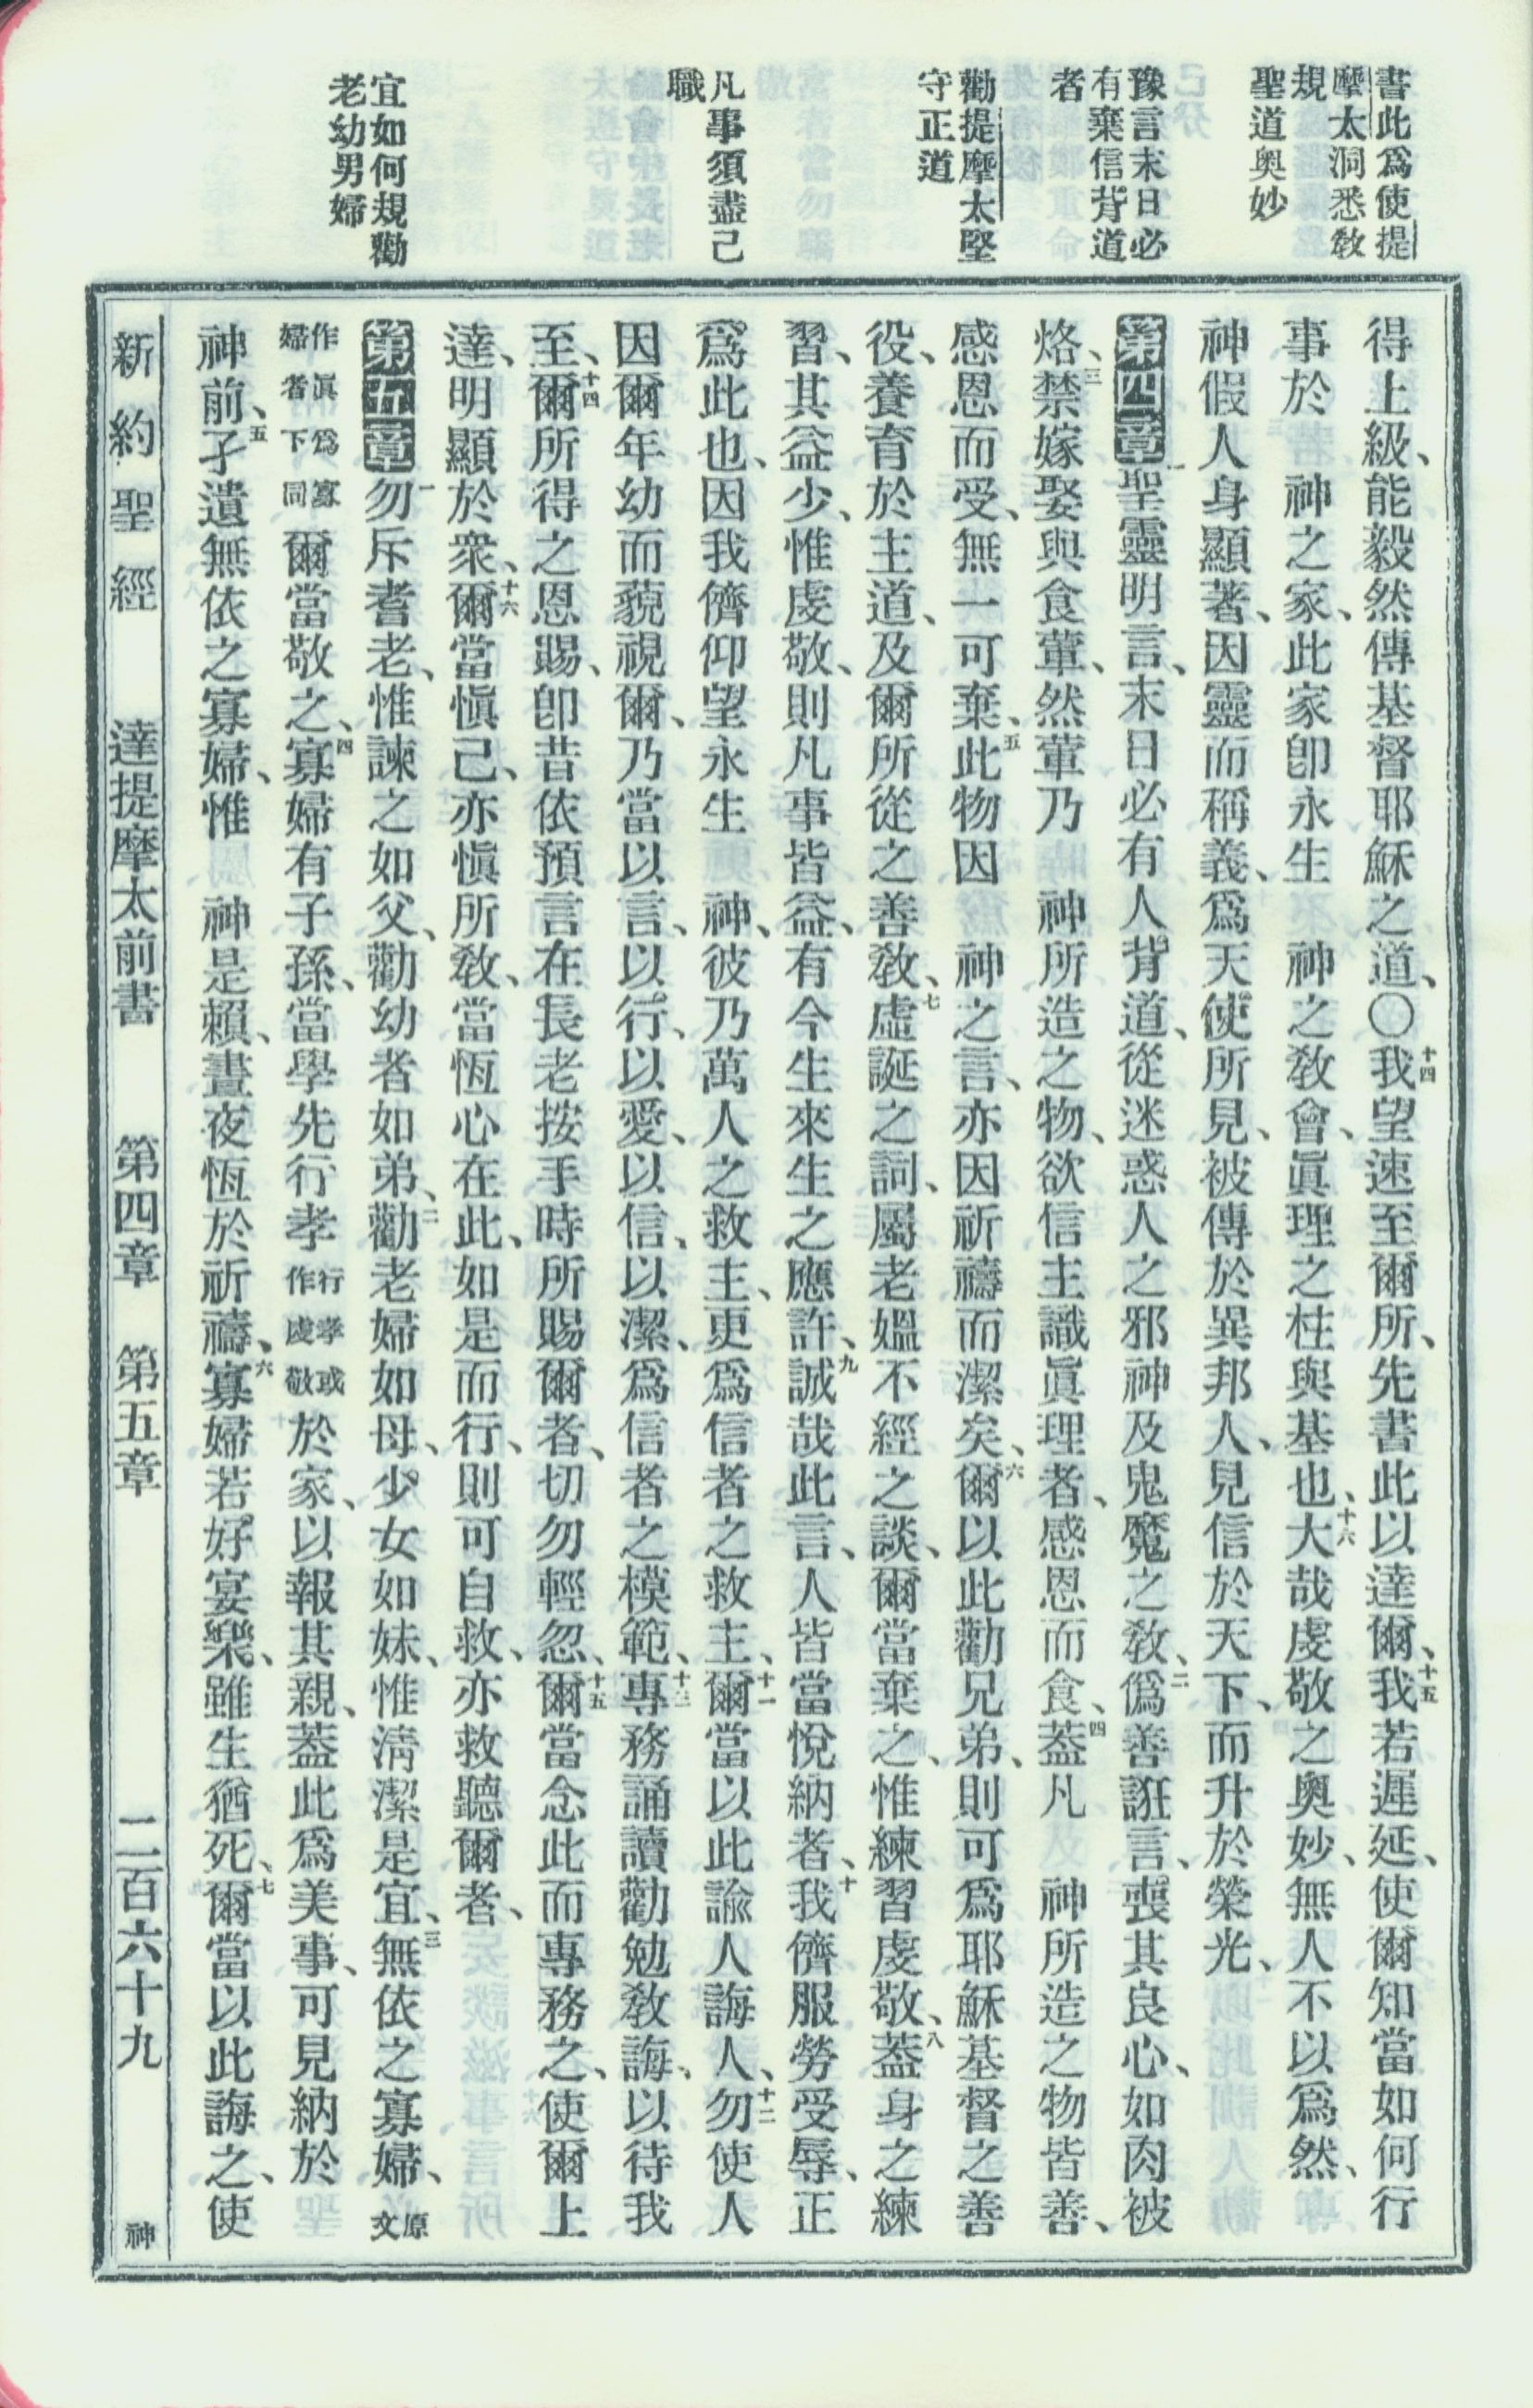 書此爲使提
摩太洞悉教
規
聖道奧妙
豫言末日必
有棄信背道
者
勸提摩太堅
守正道
凡事須盡己
職
宜如何規勸
老幼男婦
得上級、能毅然傳基督耶穌之道、〇十四我望速至爾所、先書此以達爾、十五我若遲延、使爾知當如何行
事於　神之家、此家卽永生　神之教會、眞理之柱與基也、十六大哉虔敬之奧妙、無人不以爲然、
神假人身顯著、因靈而稱義、爲天使所見、被傳於異邦人、見信於天下、而升於榮光、
第四章一聖靈明言、末日必有人背道、從迷惑人之邪神及鬼魔之教、二僞善誑言、喪其良心、如肉被
烙、三禁嫁娶與食葷、然葷乃　神所造之物、欲信主識眞理者、感恩而食、四蓋凡　神所造之物皆善、
感恩而受、無一可棄、五此物因　神之言、亦因祈禱而潔矣、六爾以此勸兄弟、則可爲耶穌基督之善
役、養育於主道、及爾所從之善教、七虛誕之詞、屬老媼不經之談、爾當棄之、惟練習虔敬、八蓋身之練
習、其益少、惟虔敬、則凡事皆益、有今生來生之應許、九誠哉此言、人皆當悅納者、十我儕服勞受辱、正
爲此也、因我儕仰望永生　神、彼乃萬人之救主、更爲信者之救主、十一爾當以此諭人誨人、十二勿使人
因爾年幼而藐視爾、乃當以言、以行、以愛、以信、以潔、爲信者之模範、十三專務誦讀勸勉教誨、以待我
至、十四爾所得之恩賜、卽昔依預言在長老按手時所賜爾者、切勿輕忽、十五爾當念此而專務之、使爾上
達、明顯於衆、十六爾當愼己、亦愼所教、當恆心在此、如是而行、則可自救、亦救聽爾者、
第五章一勿斥耆老、惟諫之如父、勸幼者如弟、二勸老婦如母、少女如妹、惟淸潔是宜、三無依之寡婦、原文
作眞爲寡婦者下同爾當敬之、四寡婦有子孫、當學先行孝行孝或作虔敬於家、以報其親、蓋此爲美事、可見納於
神前、五孑遺無依之寡婦、惟　神是賴、晝夜恆於祈禱、六寡婦若好宴樂、雖生猶死、七爾當以此誨之、使
新約聖經　達提摩太前書　第四章　第五章　二百六十九　神